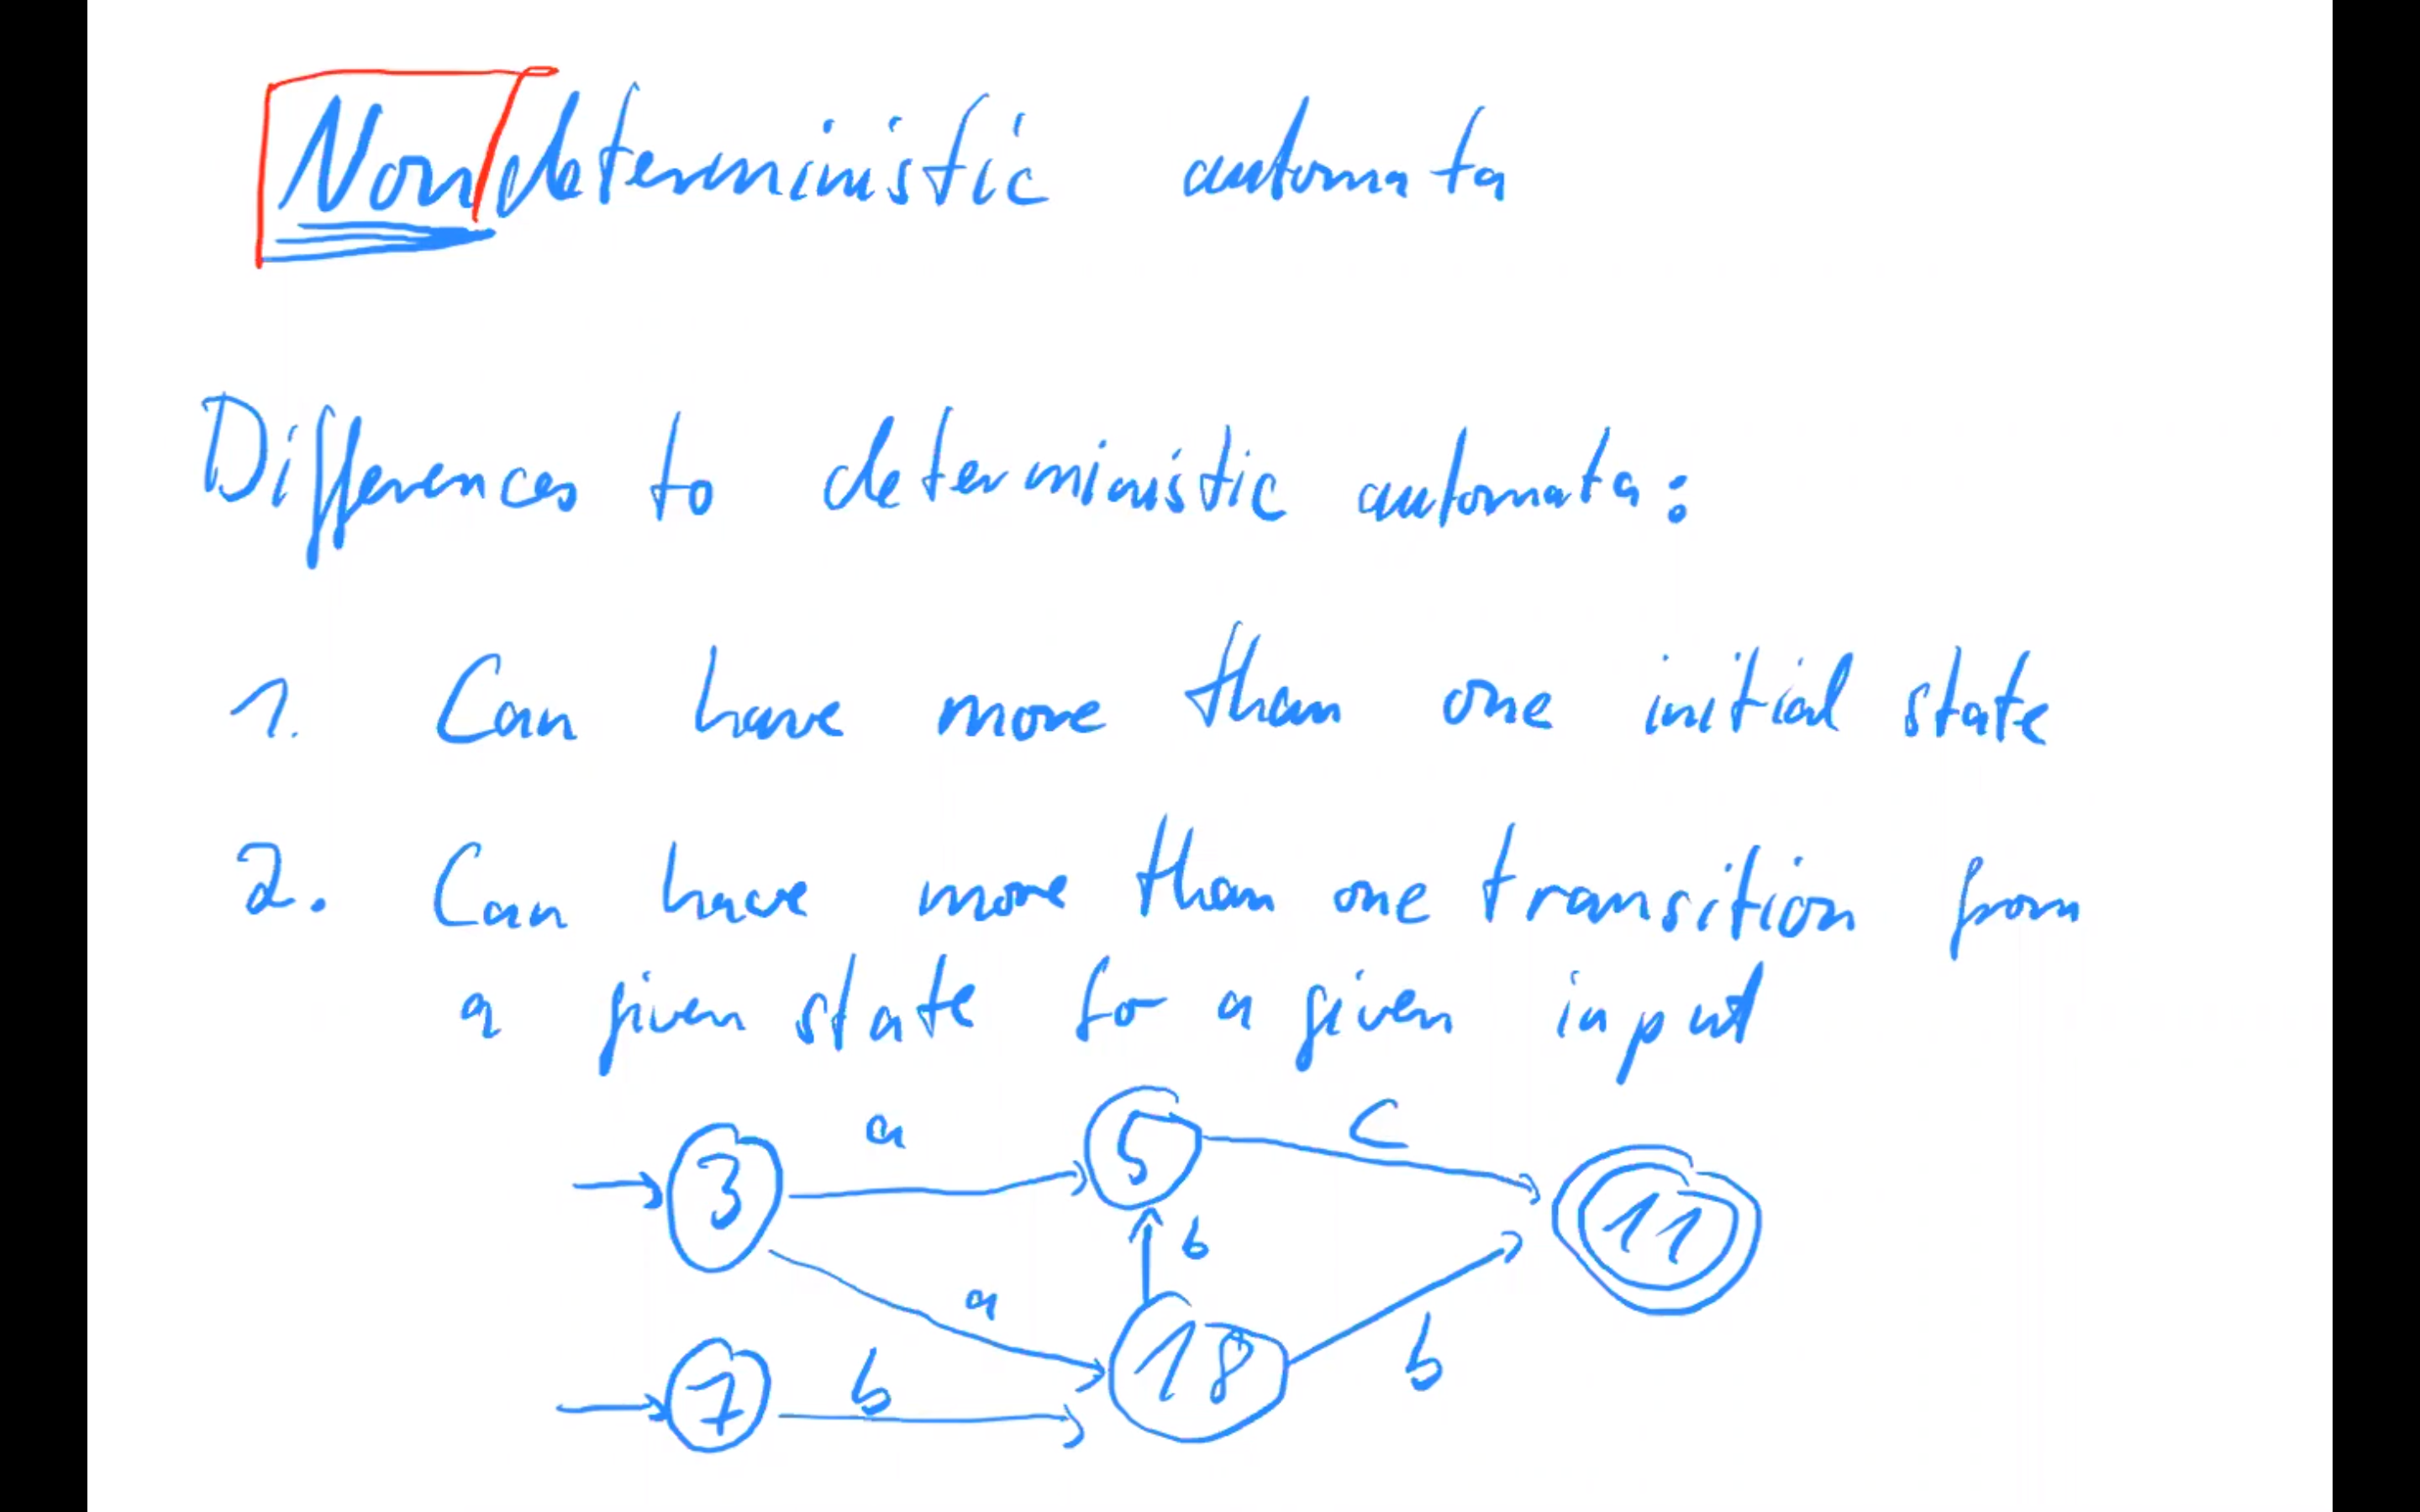 Nondeterministic automata
Differences to deterministic automata:
1. Can have more than one initial state
2. Can have more than one transition from
a given state for a given input
a
c
3
5
11
b
a
18
7
b
b